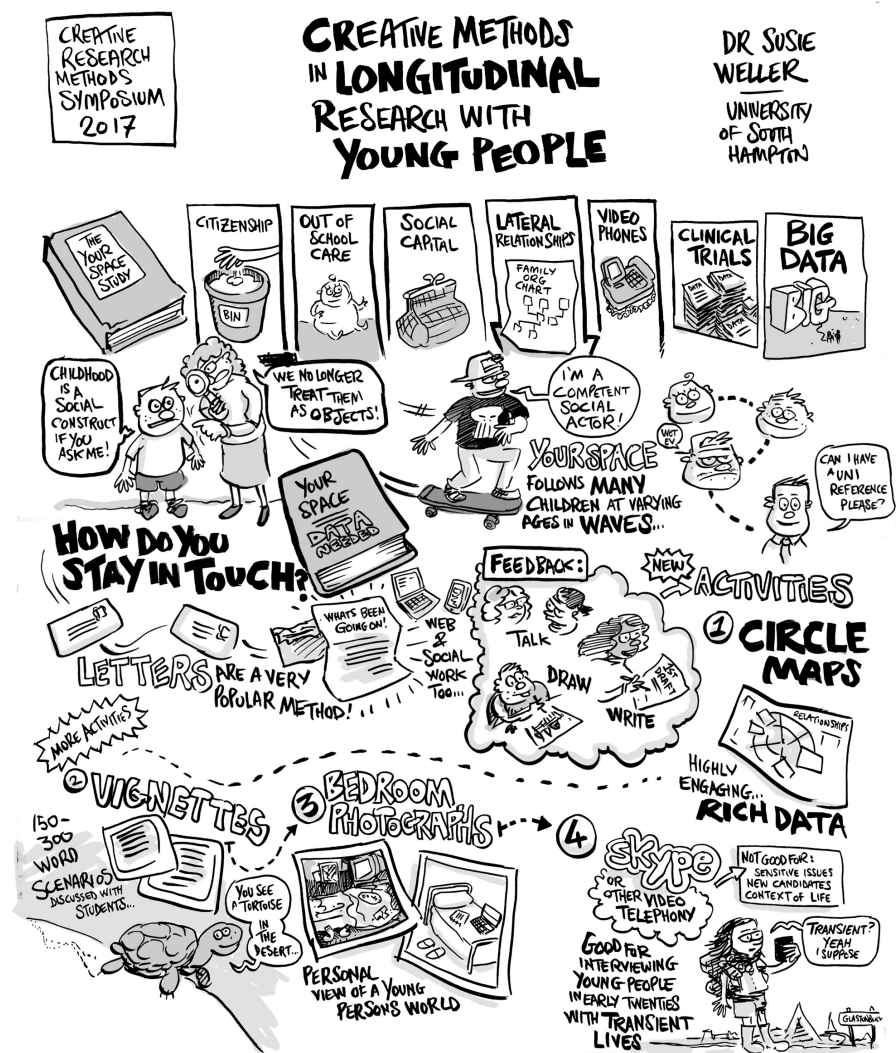 CREATIVE
RESEARCH
METHODS
SYMPOSIUM
2017
CREATIVE METHODS
IN LONGITUDINAL
RESEARCH WITH
YOUNG PEOPLE
DR SUSIE
WELLER
UNIVERSITY
OF SOUTH
HAMPTON
THE
YOUR
SPACE
STUDY
CITIZENSHIP
BIN
OUT OF
SCHOOL
CARE
SOCIAL
CAPITAL
LATERAL
RELATIONSHIPS
FAMILY
ORG
CHART
VIDEO
PHONES
CLINICAL
TRIALS
DATA
DATA
DATA
BIG
DATA
BIG
CHILDHOOD
IS A
SOCIAL
CONSTRUCT
IF YOU
ASK ME!
WE NO LONGER
TREAT THEM
AS OBJECTS!
I'M A
COMPETENT
SOCIAL
ACTOR!
YOUR SPACE
FOLLOWS MANY
CHILDREN AT VARYING
AGES IN WAVES...
WOT
EV.
CAN I HAVE
A UNI
REFERENCE
PLEASE?
YOUR
SPACE
DATA
NEEDED
HOW DO YOU
STAY IN TOUCH?
LETTERS ARE A VERY
POPULAR METHOD!
WHATS BEEN
GOING ON!
WEB
&
SOCIAL
WORK
TOO...
FEEDBACK:
TALK
DRAW
WRITE
1ST
DRAFT
NEW
ACTIVITIES
1 CIRCLE
MAPS
RELATIONSHIPS
HIGHLY
ENGAGING...
RICH DATA
MORE ACTIVITIES
2 VIGNETTES
150-
300
WORD
SCENARIOS
DISCUSSED WITH
STUDENTS...
YOU SEE
A TORTOISE
IN
THE
DESERT...
3 BEDROOM
PHOTOGRAPHS
PERSONAL
VIEW OF A YOUNG
PERSONS WORLD
4
SKYPE
OR
OTHER VIDEO
TELEPHONY
NOT GOOD FOR:
SENSITIVE ISSUES
NEW CANDIDATES
CONTEXT OF LIFE
GOOD FOR
INTERVIEWING
YOUNG PEOPLE
IN EARLY TWENTIES
WITH TRANSIENT
LIVES
TRANSIENT?
YEAH
I SUPPOSE
GLASTONBURY